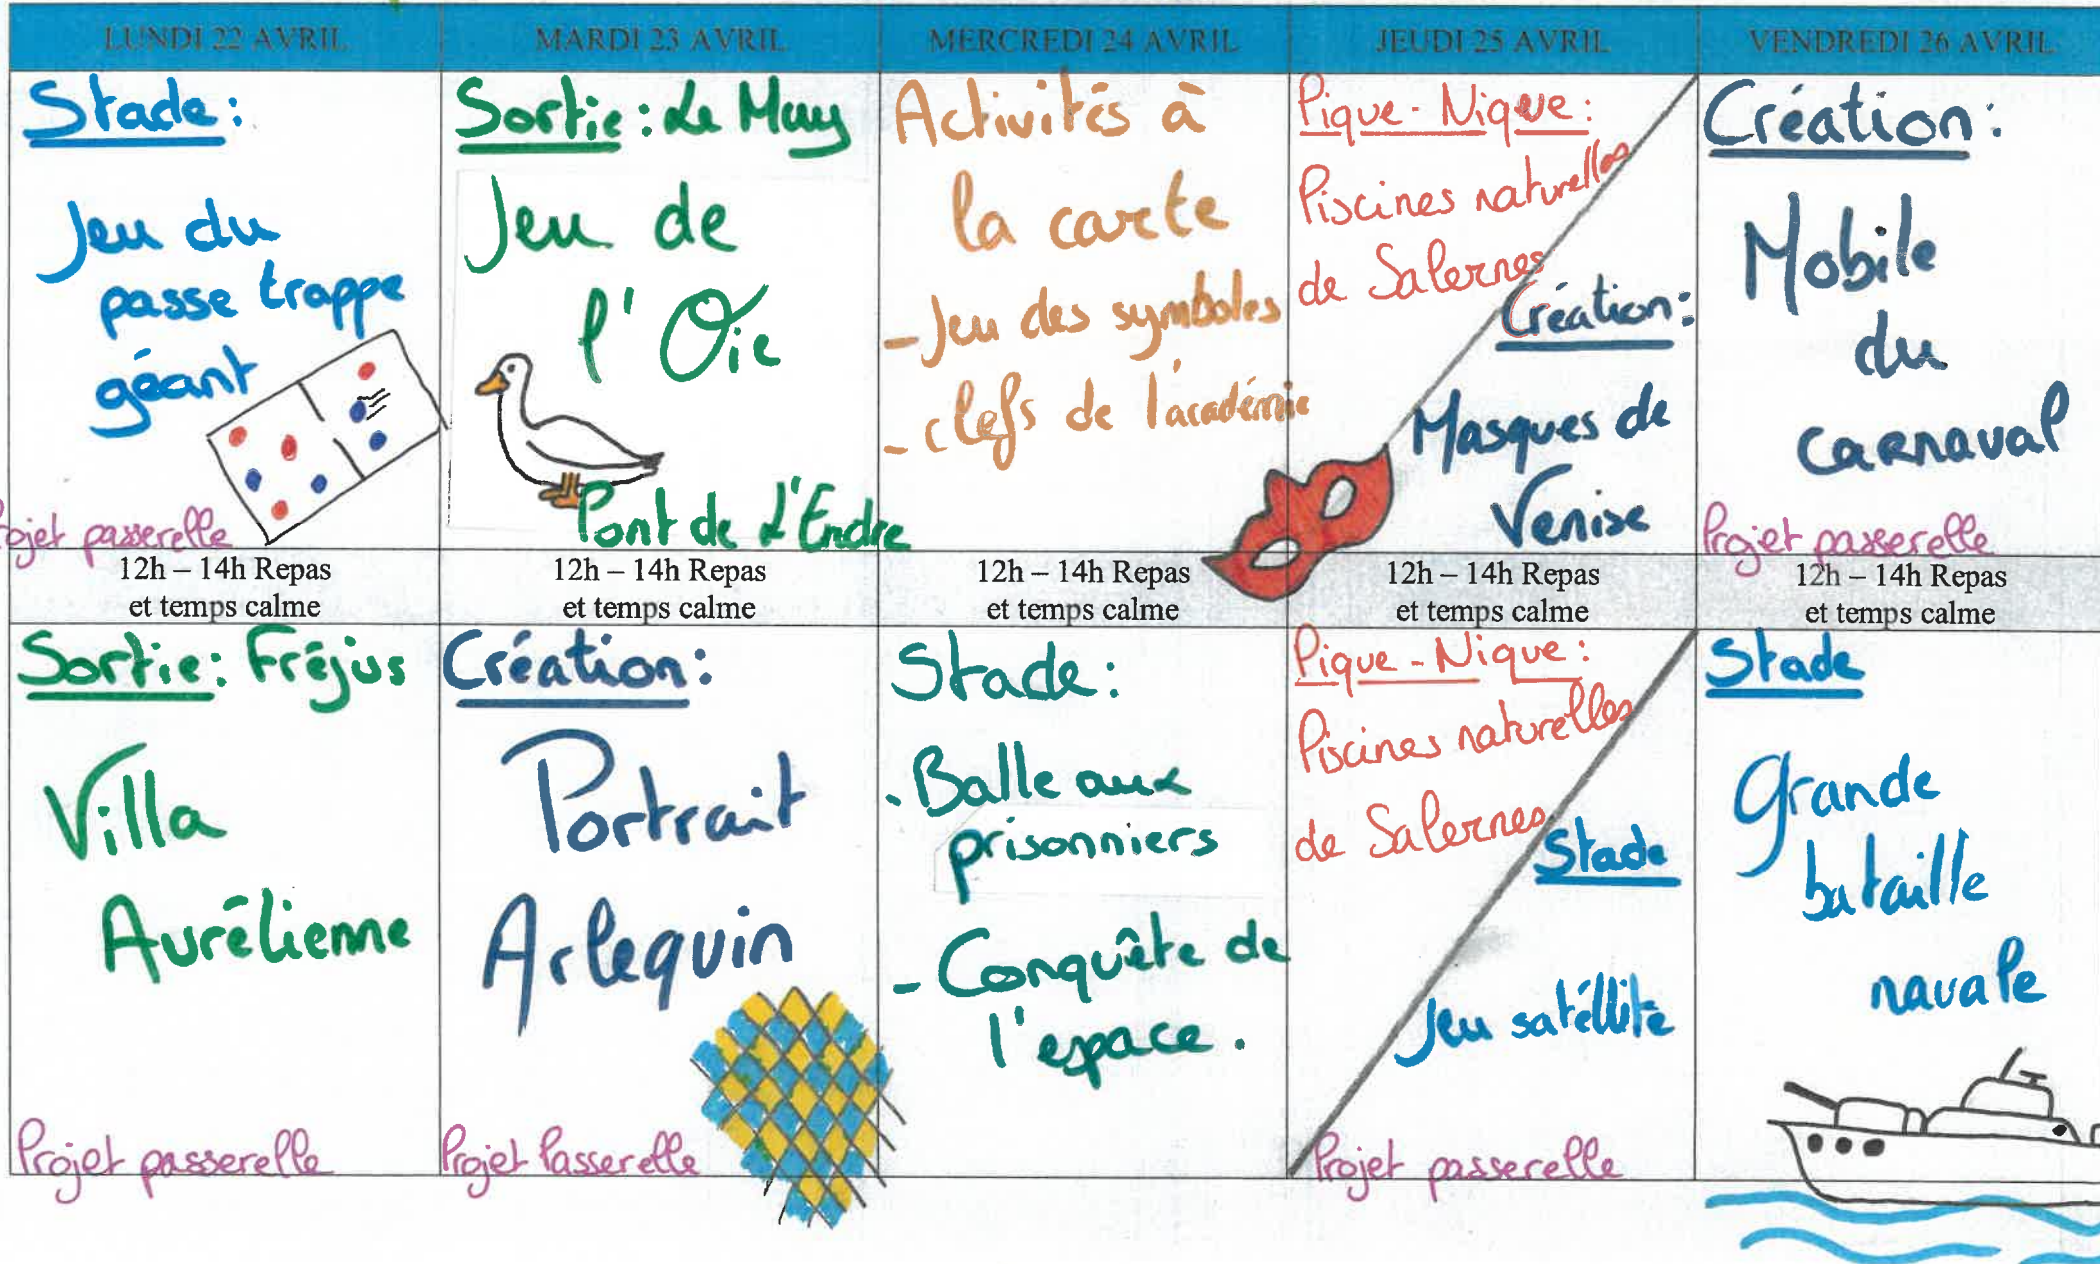 LUNDI 22 AVRIL
MARDI 23 AVRIL
MERCREDI 24 AVRIL
JEUDI 25 AVRIL
VENDREDI 26 AVRIL
Stade :
Jeu du
passe trappe
géant
Projet passerelle
Sortie : Le Muy
Jeu de
l'Oie
Pont de L'Endre
Activités à
la carte
- Jeu des symboles
- clefs de l'académie
Pique-Nique :
Piscines naturelles
de Salernes
Création :
Masques de
Venise
Création :
Mobile
du
carnaval
Projet passerelle
12h – 14h Repas
et temps calme
12h – 14h Repas
et temps calme
12h – 14h Repas
et temps calme
12h – 14h Repas
et temps calme
12h – 14h Repas
et temps calme
Sortie : Fréjus
Villa
Aurélienne
Projet passerelle
Création :
Portrait
Arlequin
Projet Passerelle
Stade :
. Balle aux
prisonniers
- Conquête de
l'espace.
Pique-Nique :
Piscines naturelles
de Salernes
Stade
Jeu satéllite
Projet passerelle
Stade
Grande
bataille
navale